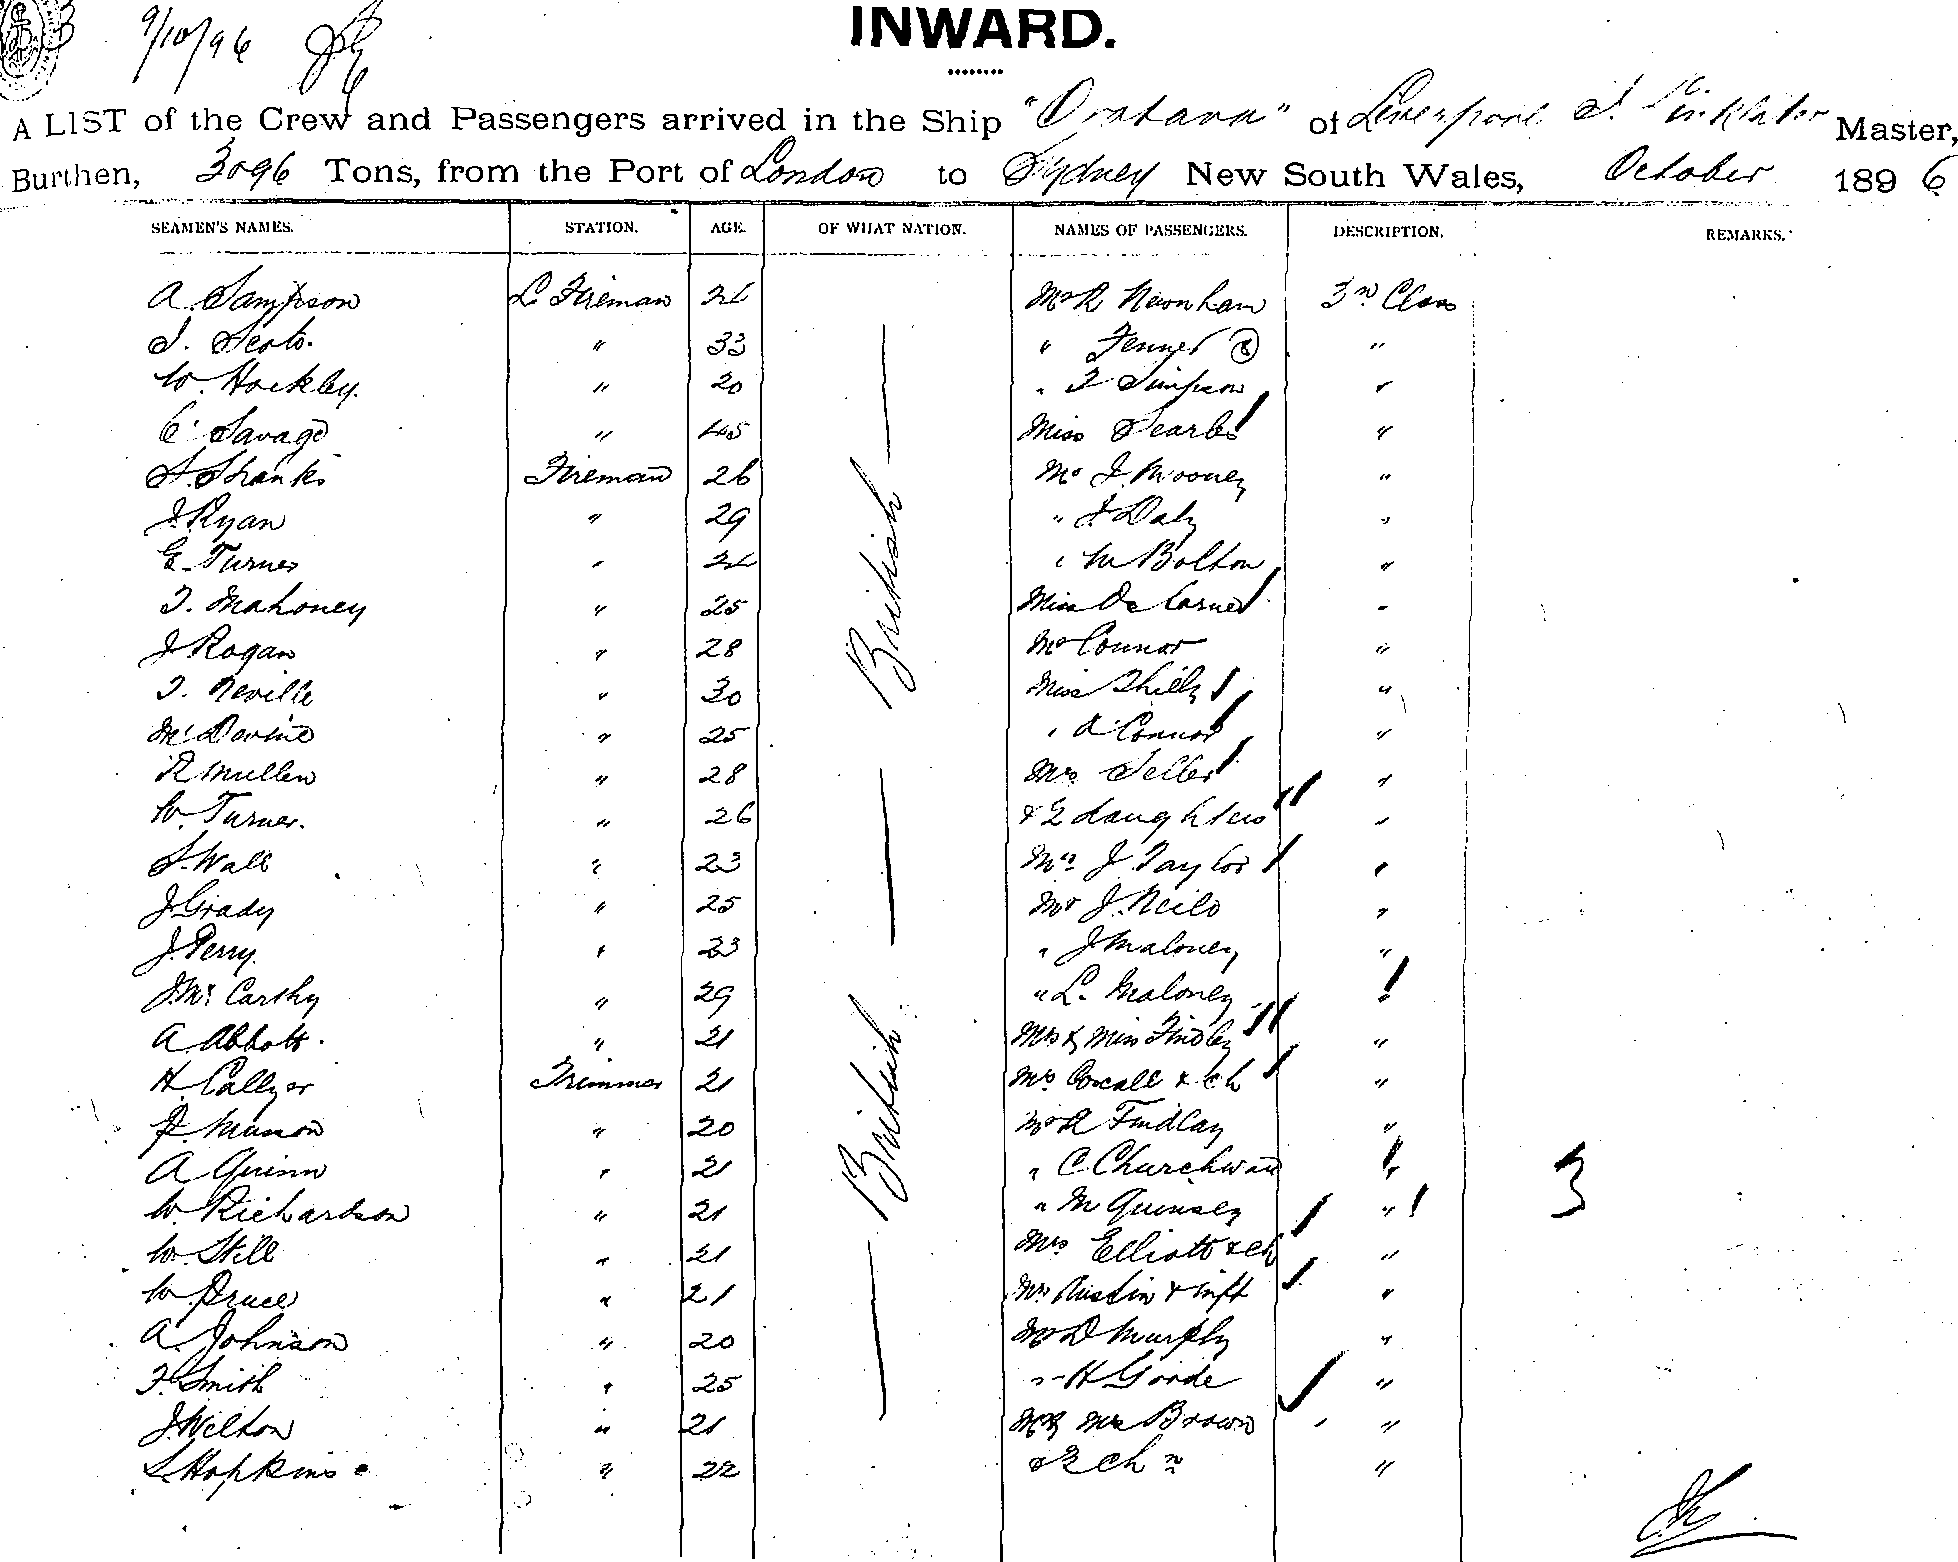 9/10/96
INWARD.
A LIST of the Crew and Passengers arrived in the Ship "Oratava" of Liverpool J. Sinklater Master,
Burthen, 3096 Tons, from the Port of London to Sydney New South Wales, October 1896
SEAMEN'S NAMES. STATION. AGE. OF WHAT NATION. NAMES OF PASSENGERS. DESCRIPTION. REMARKS.
A. Sampson L Fireman Mr R Newnham 3rd Class
J. Scott. " 33 " Fenner "
W. Hockley. " 20 " T Simpson "
C. Savage " 45 Miss Searle "
S. Shanks Fireman 26 Mr J. Mooney "
J. Ryan " 29 " J Daly "
E. Turner " " M Bolton "
T. Mahoney " 25 Miss "
J Rogan " 28 Mr Connor "
T. Neville " 30 Miss "
M. Devine " 25 " A Connor "
R Mullen " 28 Mrs Seller "
W. Turner. " 26 & 2 daughters "
S. Wall " 23 Mrs J. Taylor "
J Grady " 25 Mr J. Neild "
J. Perry. " 23 " J Maloney "
J. McCarthy " 29 " L. Maloney "
A. Abbott. " 21 Mrs & Miss Findlay "
H. Collyer Trimmer 21 Mrs Coxall & ch "
P. Munson " 20 Mr R Findlay "
A Quinn " 21 " C Churchward "
W. Richardson " 21 " M Guinsey "
W. Still " 21 Mrs Elliott & ch "
W. Pruce " 21 Mrs Austin & inft "
A. Johnson " 20 Mr D Murphy "
F. Smith " 25 " H Goode "
J. Wilton " 21 Mr & Mrs Brown "
S Hopkins " 22 & 2 chn "
British
British
3